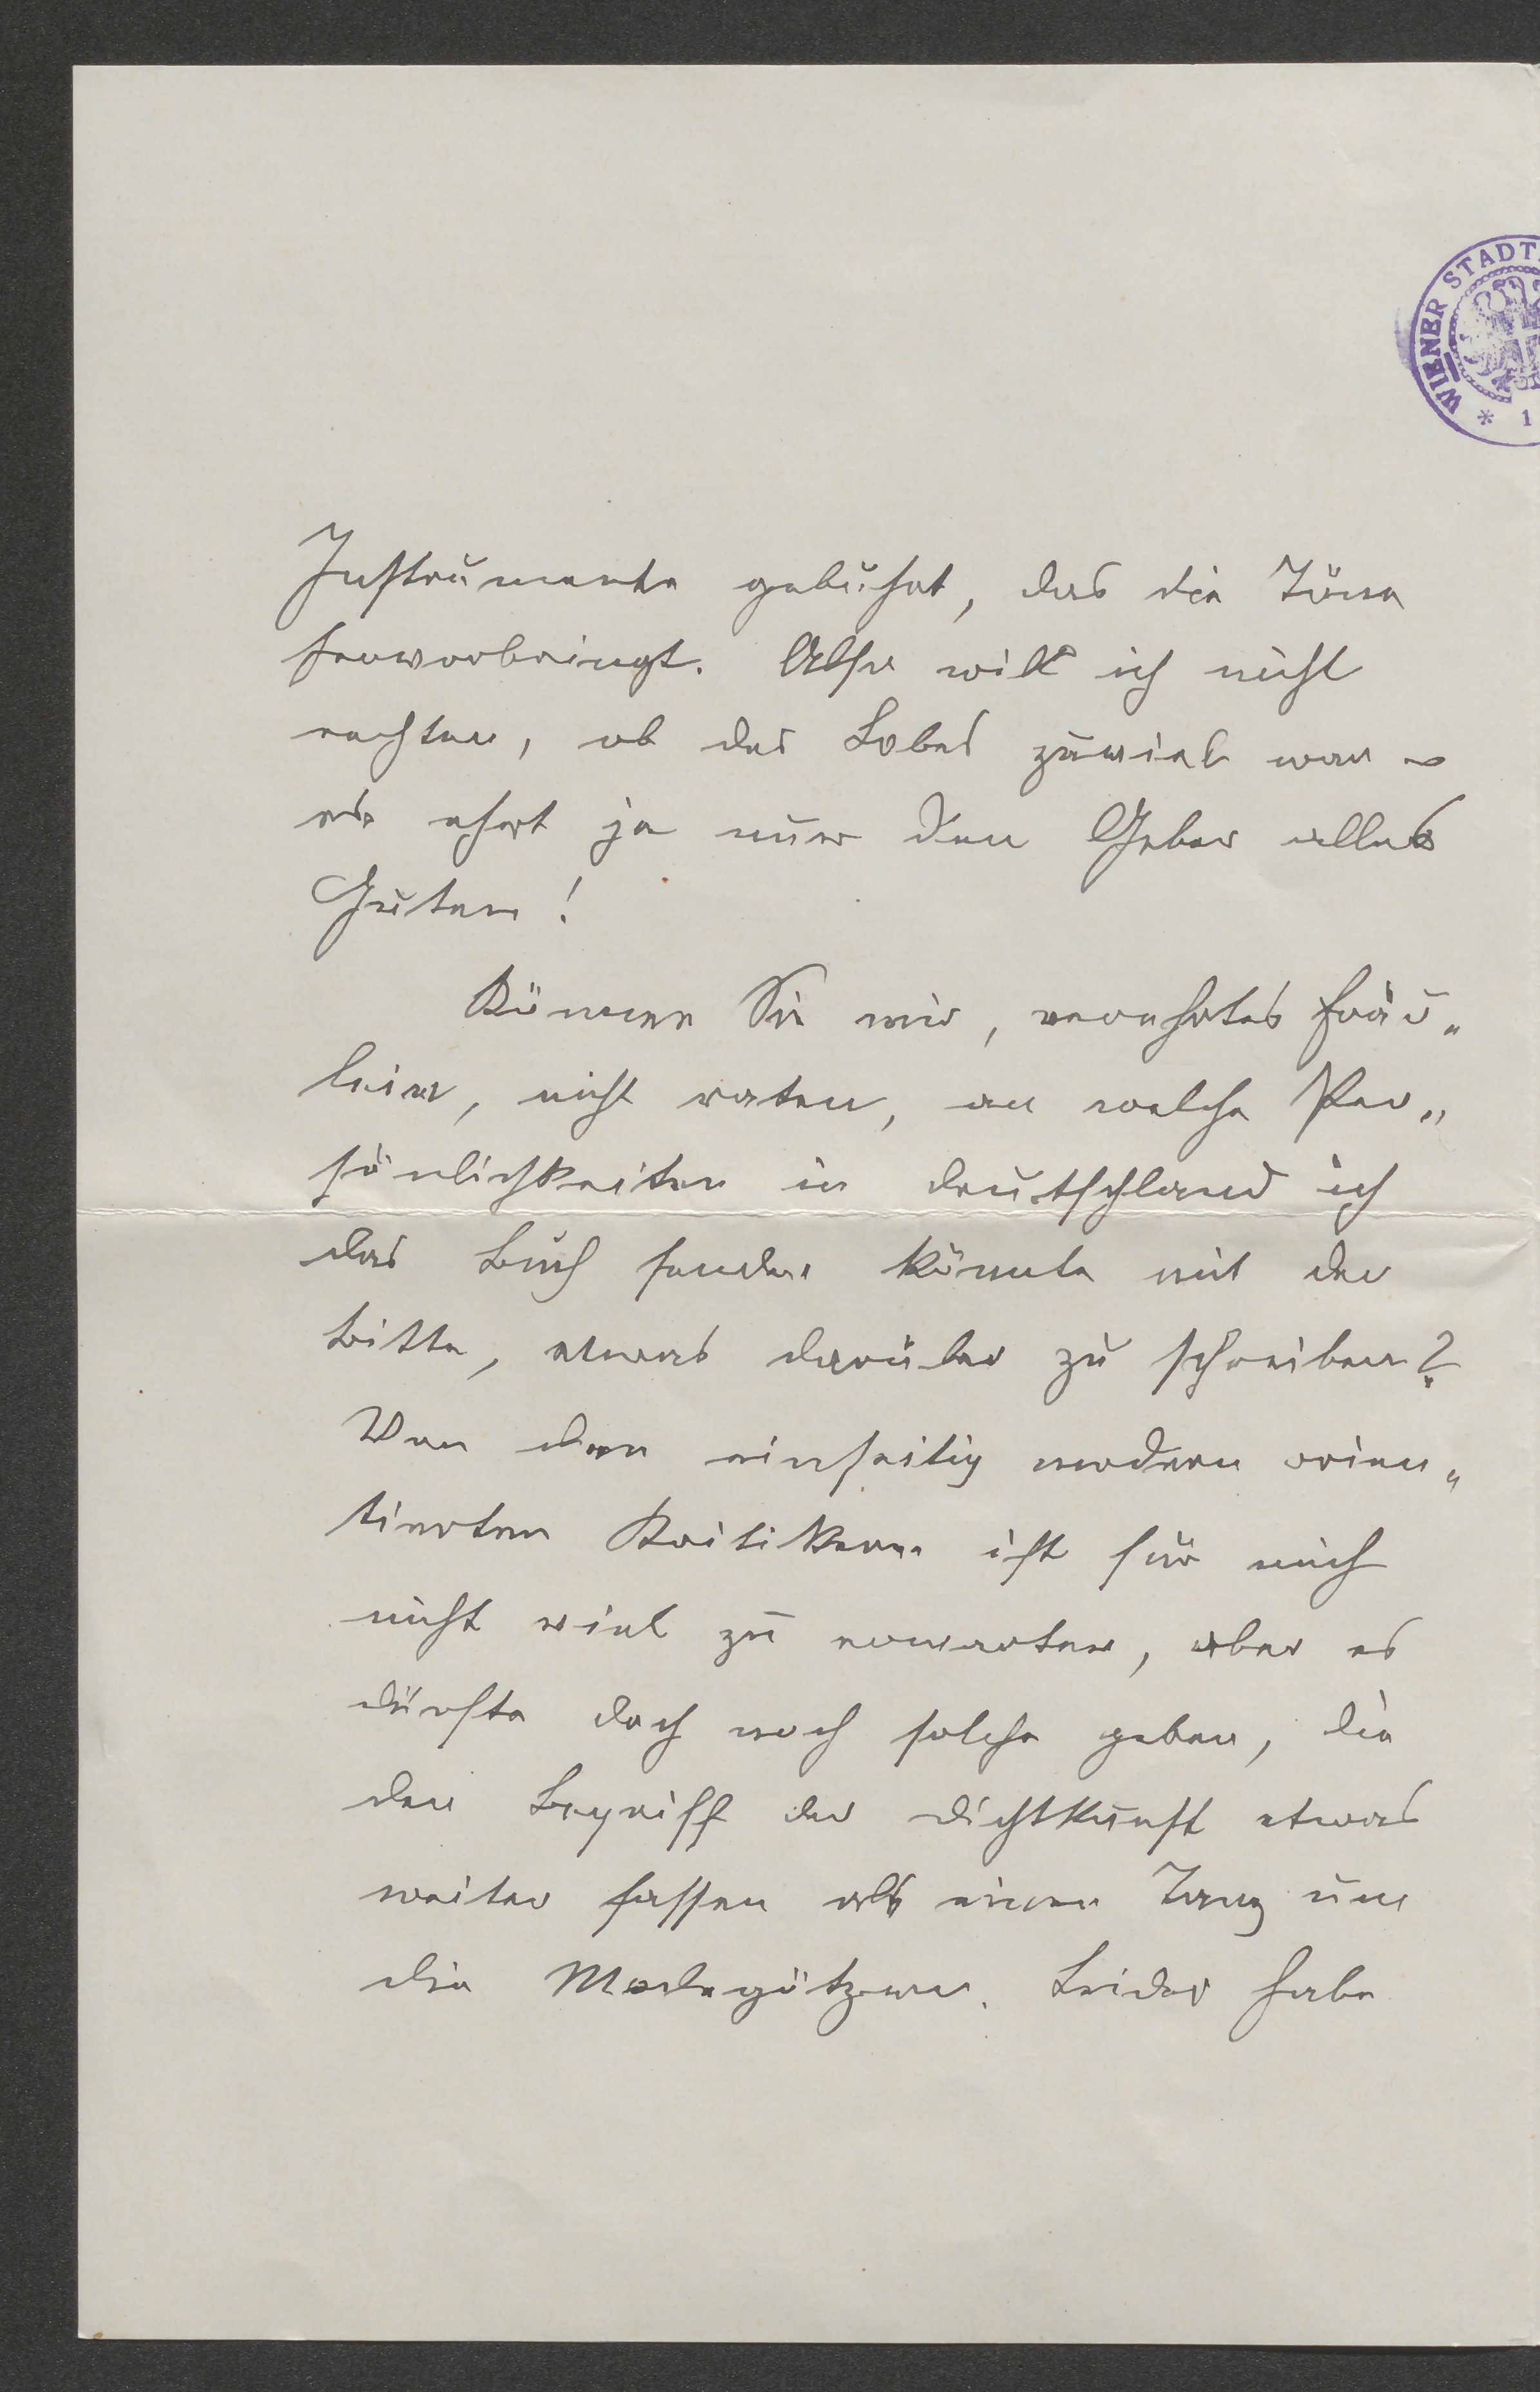 WIENER STADT
* 1
Instrumente gebührt, das die Töne
hervorbringt. Also will ich nicht
rechten, ob des Lobes zuviel war –
es ehrt ja nur den Geber alles
Guten!
Können Sie mir, verehrtes Fräu„
lein, nicht raten, an welche Per„
sönlichkeiten in Deutschland ich
das Buch senden könnte mit der
Bitte, etwas darüber zu schreiben?
Von den einseitig modern orien„
tierten Kritikern ist für mich
nicht viel zu erwarten, aber es
dürfte doch noch solche geben, die
den Begriff der Dichtkunst etwas
weiter fassen als einen Tanz um
die Modegötzen. Leider habe